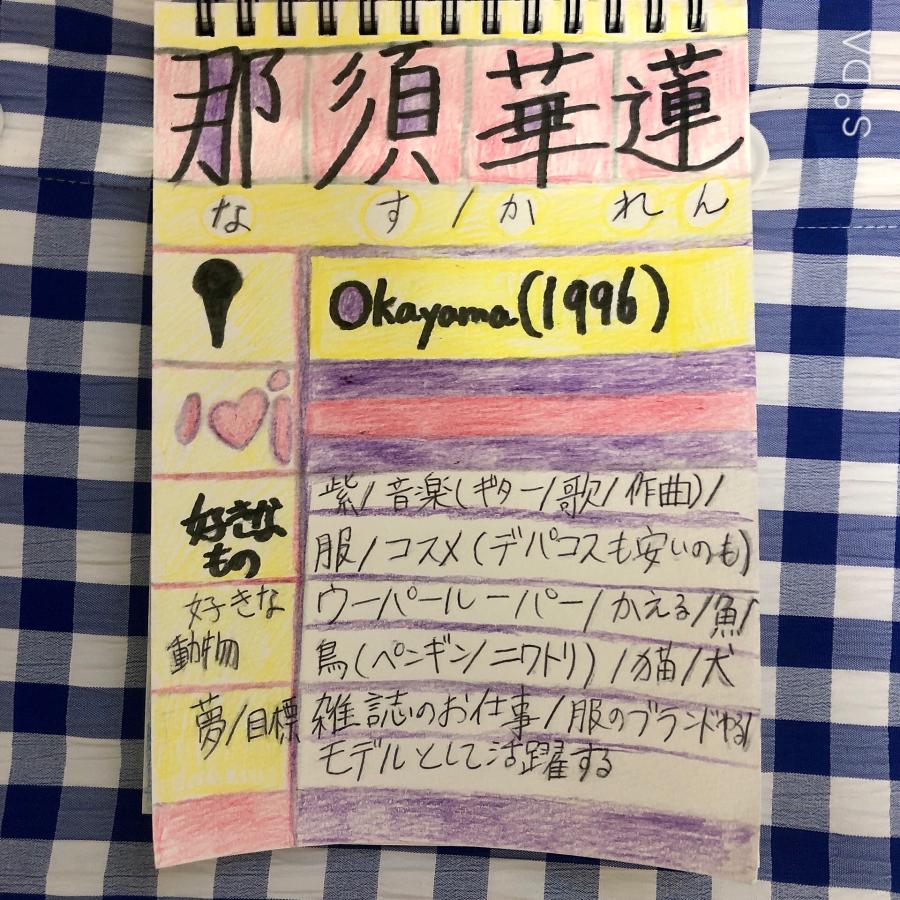 那須華蓮
なす/かれん
Okayama(1996)
I♥i
好きな
もの
紫/音楽(ギター/歌/作曲)/
服/コスメ(デパコスも安いのも)
好きな
動物
ウーパールーパー/かえる/魚/
鳥(ペンギン/ニワトリ)/猫/犬
夢/目標
雑誌のお仕事/服のブランドやる/
モデルとして活躍する